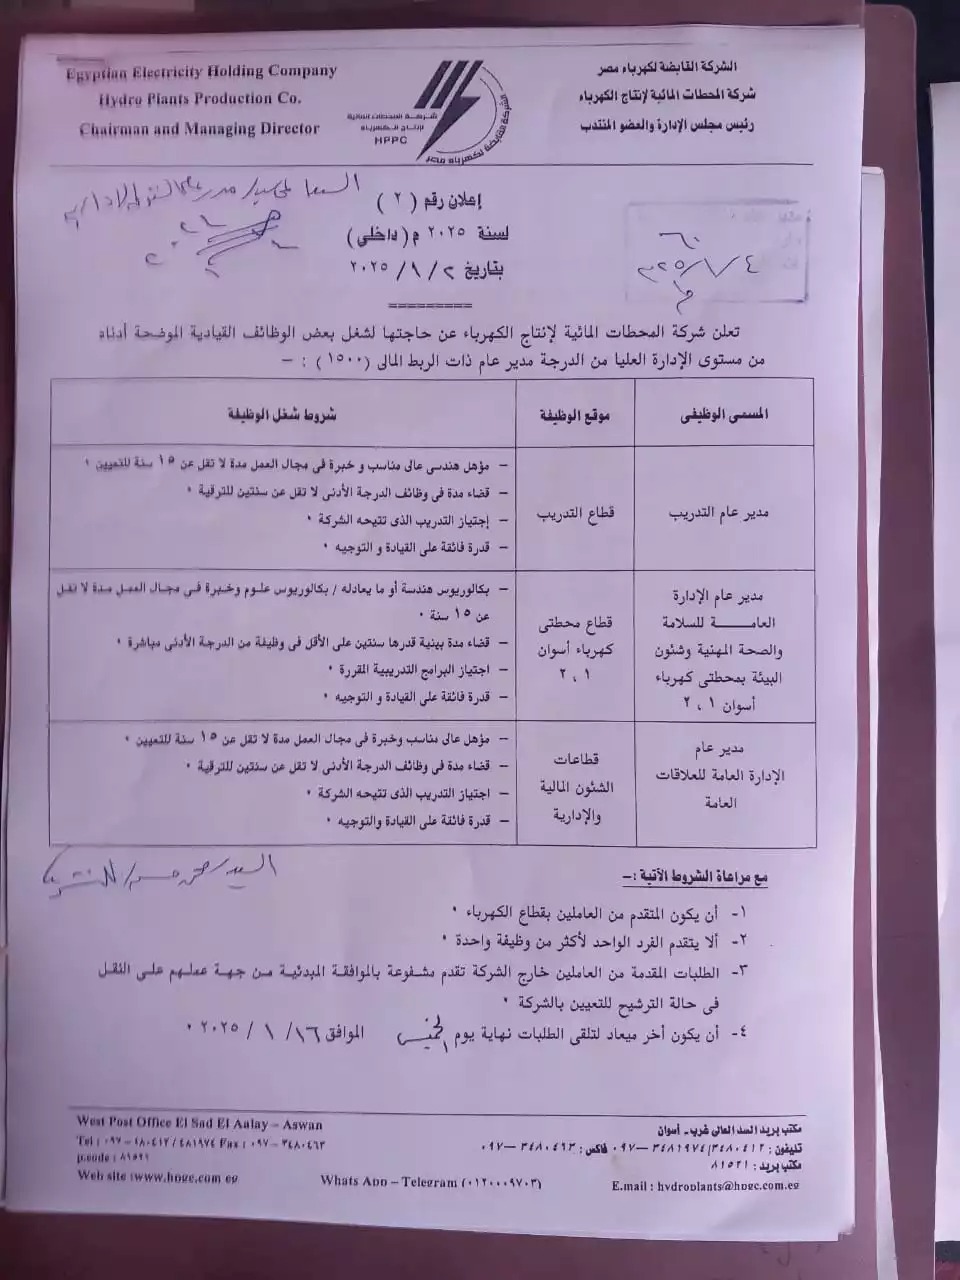 Egyptian Electricity Holding Company
Hydro Plants Production Co.
Chairman and Managing Director
الشركة القابضة لكهرباء مصر
شركة المحطات المائية لإنتاج الكهرباء
رئيس مجلس الإدارة والعضو المنتدب
شركة المحطات المائية
لإنتاج الكهرباء
HPPC
الشركة القابضة لكهرباء مصر
إعلان رقم ( ٢ )
لسنة ٢٠٢٥ م ( داخلى )
بتاريخ ٢ / ١ / ٢٠٢٥
=========
٢٠٢٥/١/٤
تعلن شركة المحطات المائية لإنتاج الكهرباء عن حاجتها لشغل بعض الوظائف القيادية الموضحة أدناه
من مستوى الإدارة العليا من الدرجة مدير عام ذات الربط المالى ( ١٥٠٠ ) : –
المسمى الوظيفى
موقع الوظيفة
شروط شغل الوظيفة
مدير عام التدريب
قطاع التدريب
– مؤهل هندسى عالى مناسب و خبرة فى مجال العمل مدة لا تقل عن ١٥ سنة للتعيين ٠
– قضاء مدة فى وظائف الدرجة الأدنى لا تقل عن سنتين للترقية ٠
– إجتياز التدريب الذى تتيحه الشركة ٠
– قدرة فائقة على القيادة و التوجيه ٠
مدير عام الإدارة
العامــــــة للسلامة
والصحة المهنية وشئون
البيئة بمحطتى كهرباء
أسوان ١ ، ٢
قطاع محطتى
كهرباء أسوان
١ ، ٢
– بكالوريوس هندسة أو ما يعادله / بكالوريوس علوم وخبرة فى مجال العمل مدة لا تقل
عن ١٥ سنة ٠
– قضاء مدة بينية قدرها سنتين على الأقل فى وظيفة من الدرجة الأدنى مباشرة ٠
– اجتياز البرامج التدريبية المقررة ٠
– قدرة فائقة على القيادة و التوجيه ٠
مدير عام
الإدارة العامة للعلاقات
العامة
قطاعات
الشئون المالية
والإدارية
– مؤهل عالى مناسب وخبرة فى مجال العمل مدة لا تقل عن ١٥ سنة للتعيين ٠
– قضاء مدة فى وظائف الدرجة الأدنى لا تقل عن سنتين للترقية ٠
– اجتياز التدريب الذى تتيحه الشركة ٠
– قدرة فائقة على القيادة والتوجيه ٠
مع مراعاة الشروط الآتية :–
١- أن يكون المتقدم من العاملين بقطاع الكهرباء ٠
٢- ألا يتقدم الفرد الواحد لأكثر من وظيفة واحدة ٠
٣- الطلبات المقدمة من العاملين خارج الشركة تقدم مشفوعة بالموافقة المبدئية من جهة عملهم على النقل
فى حالة الترشيح للتعيين بالشركة ٠
٤- أن يكون أخر ميعاد لتلقى الطلبات نهاية يوم الخميس الموافق ١٦ / ١ / ٢٠٢٥ ٠
West Post Office El Sad El Aalay – Aswan
Tel : ٠٩٧ – ٣٤٨٠٤١٢ / ٣٤٨١٩٧٤ Fax : ٠٩٧ – ٣٤٨٠٤٦٣
p.code : ٨١٥٢١
Web site :www.hpgc.com eg
Whats App – Telegram (٠١٢٠٠٠٩٧٠٣)
مكتب بريد السد العالى غرب- أسوان
تليفون : ٣٤٨٠٤١٢/ ٣٤٨١٩٧٤ –٠٩٧ فاكس : ٣٤٨٠٤٦٣ –٠٩٧
مكتب بريد : ٨١٥٢١
E.mail : hydroplants@hpgc.com.eg